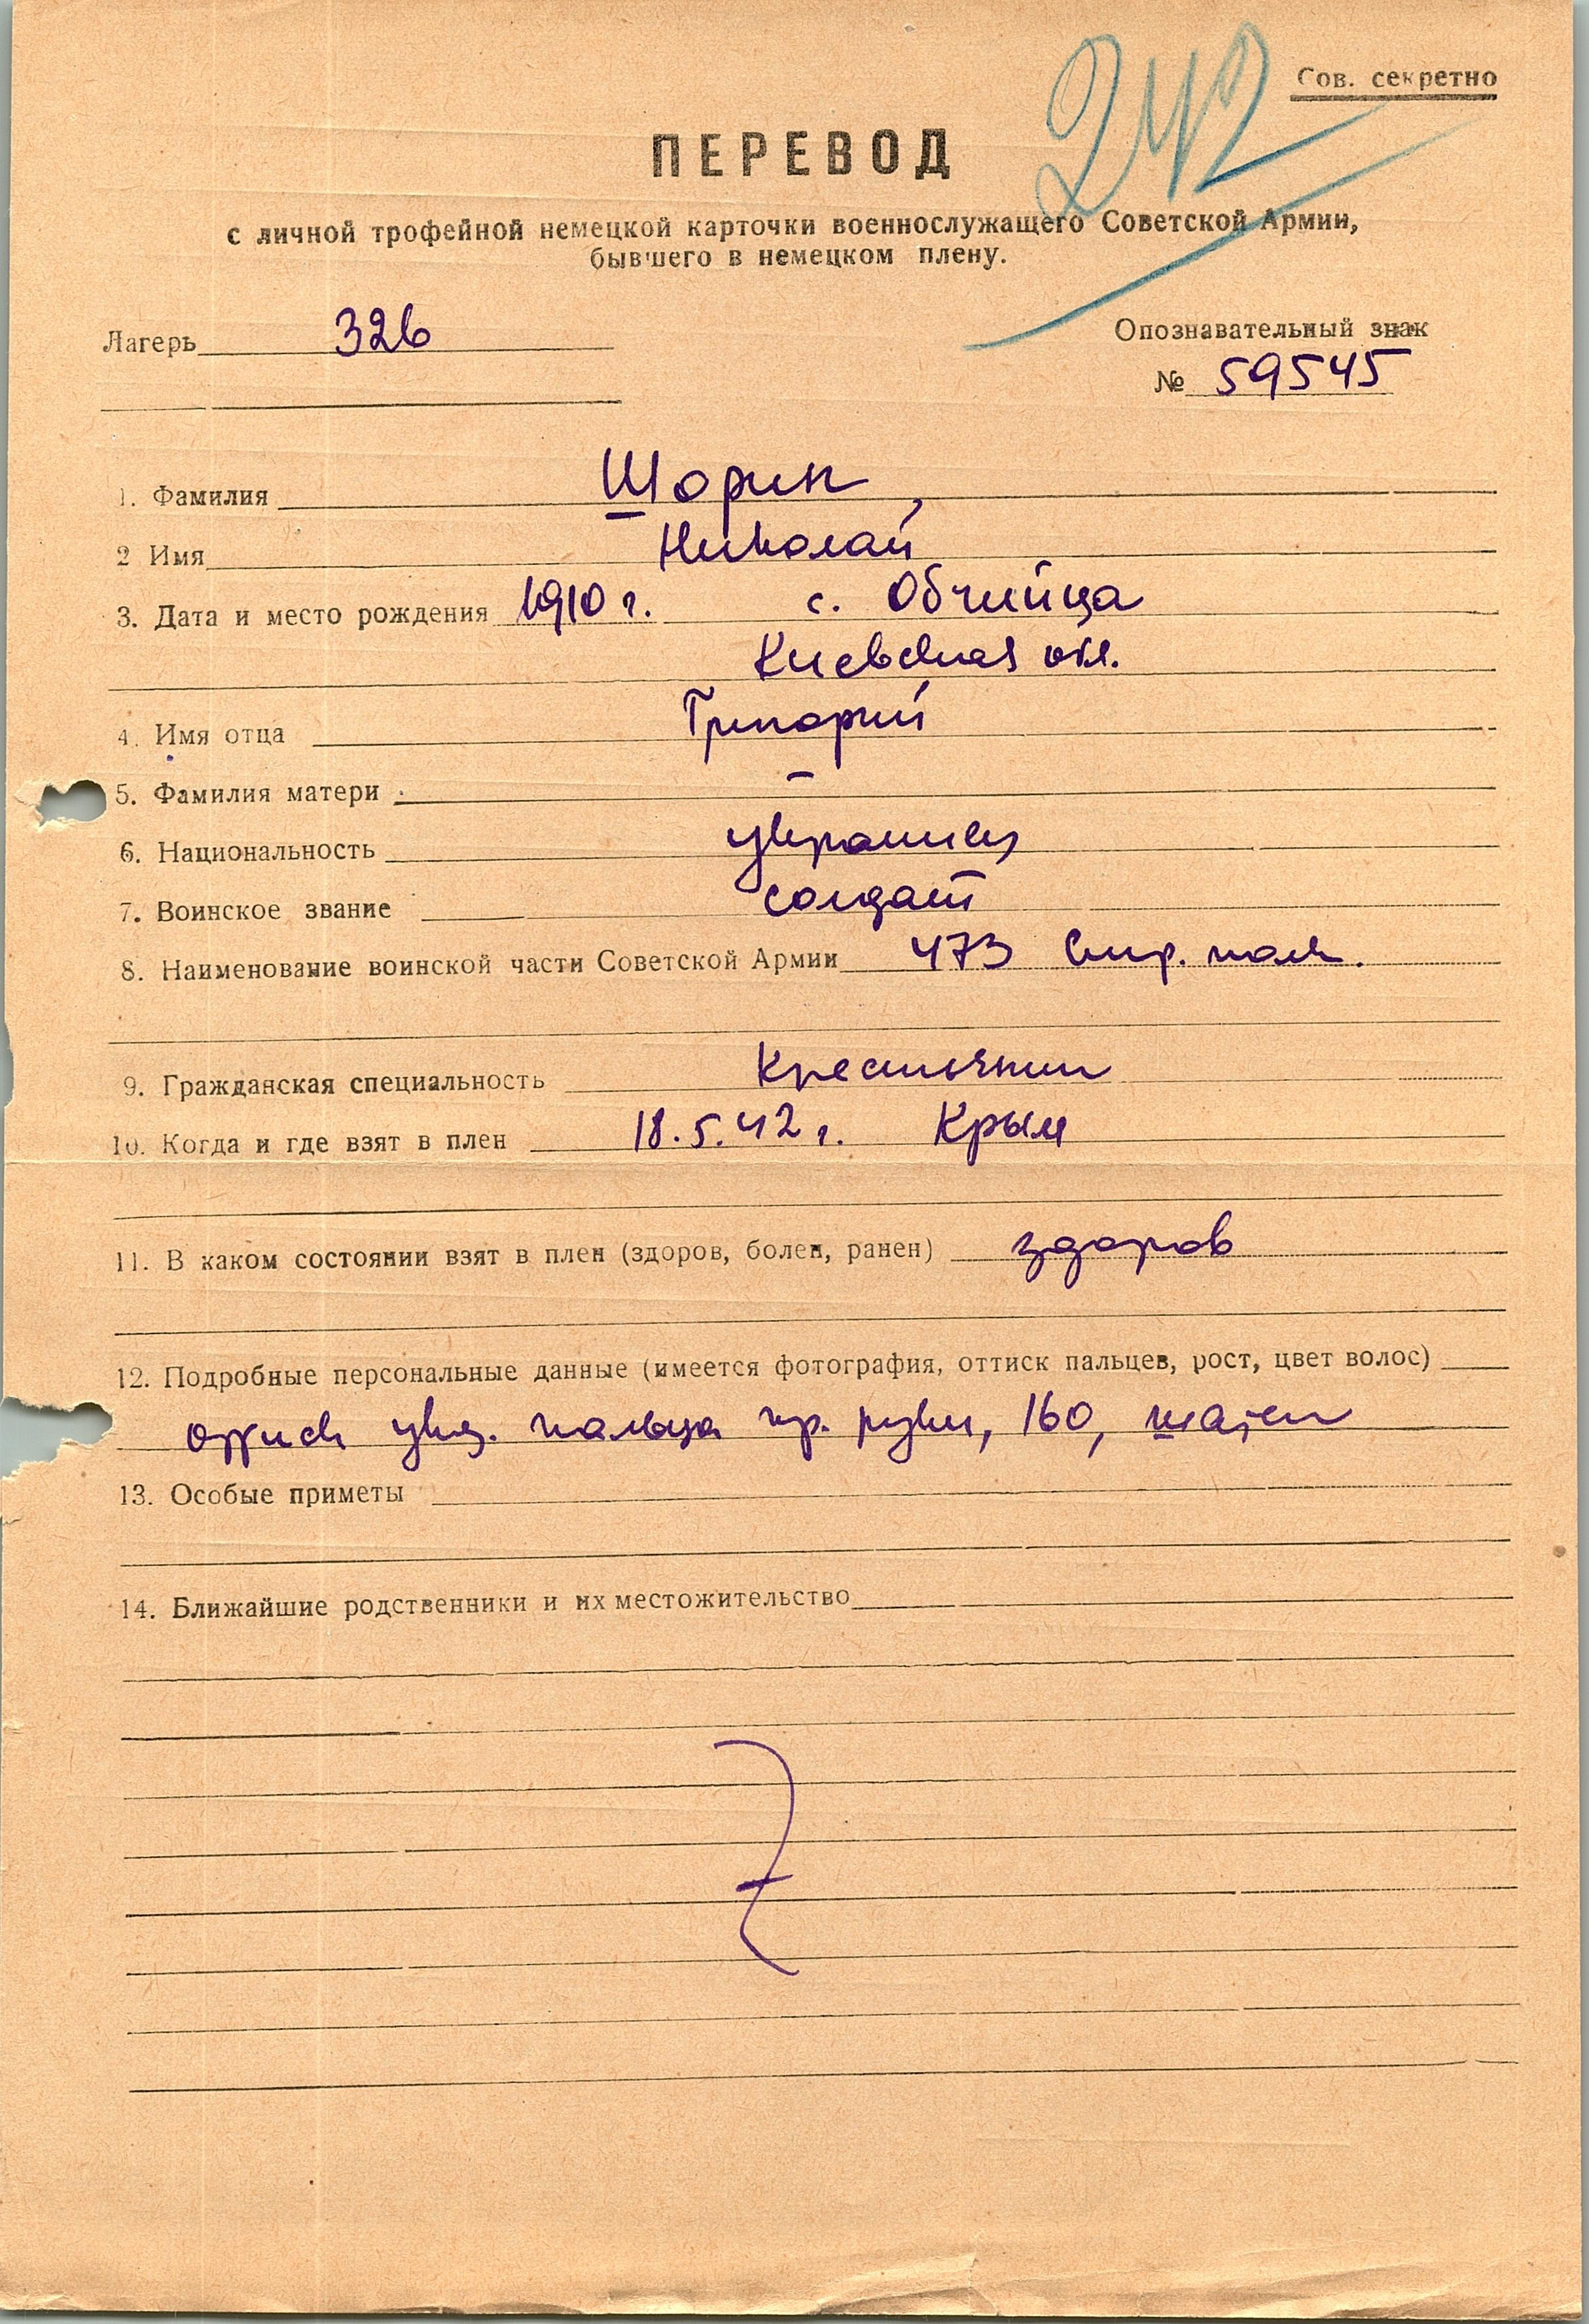 242
Сов. секретно
ПЕРЕВОД
с личной трофейной немецкой карточки военнослужащего Советской Армии,
бывшего в немецком плену.
Лагерь 326
Опознавательный знак
№ 59545
1. Фамилия Шорин,
2 Имя Николай
3. Дата и место рождения 1910 г. с. Обчийца
Киевская обл.
4. Имя отца Григорий
5. Фамилия матери —
6. Национальность украинец
7. Воинское звание солдат
8. Наименование воинской части Советской Армии 473 стр. полк.
9. Гражданская специальность крестьянин
10. Когда и где взят в плен 18.5.42 г. Крым
11. В каком состоянии взят в плен (здоров, болен, ранен) здоров
12. Подробные персональные данные (имеется фотография, оттиск пальцев, рост, цвет волос)
оттиск указ. пальца пр. руки, 160, шатен
13. Особые приметы
14. Ближайшие родственники и их местожительство